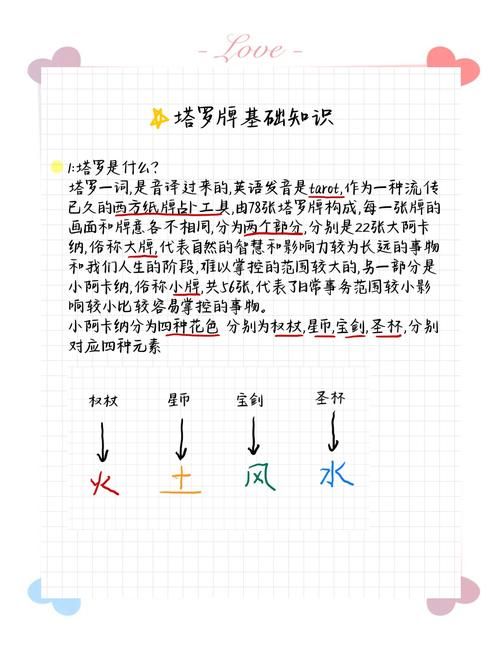 - Love -
塔罗牌基础知识
1:塔罗是什么?
塔罗一词,是音译过来的,英语发音是tarot,作为一种流传
已久的西方纸牌占卜工具,由78张塔罗牌构成,每一张牌的
画面和牌意各不相同,分为两个部分,分别是22张大阿卡
纳,俗称大牌,代表自然的智慧和影响力较为长远的事物
和我们人生的阶段,难以掌控的范围较大的,另一部分是
小阿卡纳,俗称小牌,共56张,代表了日常事务范围较小影
响较小比较容易掌控的事物。
小阿卡纳分为四种花色 分别为权杖,星币,宝剑,圣杯,分别
对应四种元素
权杖 星币 宝剑 圣杯
火 土 风 水